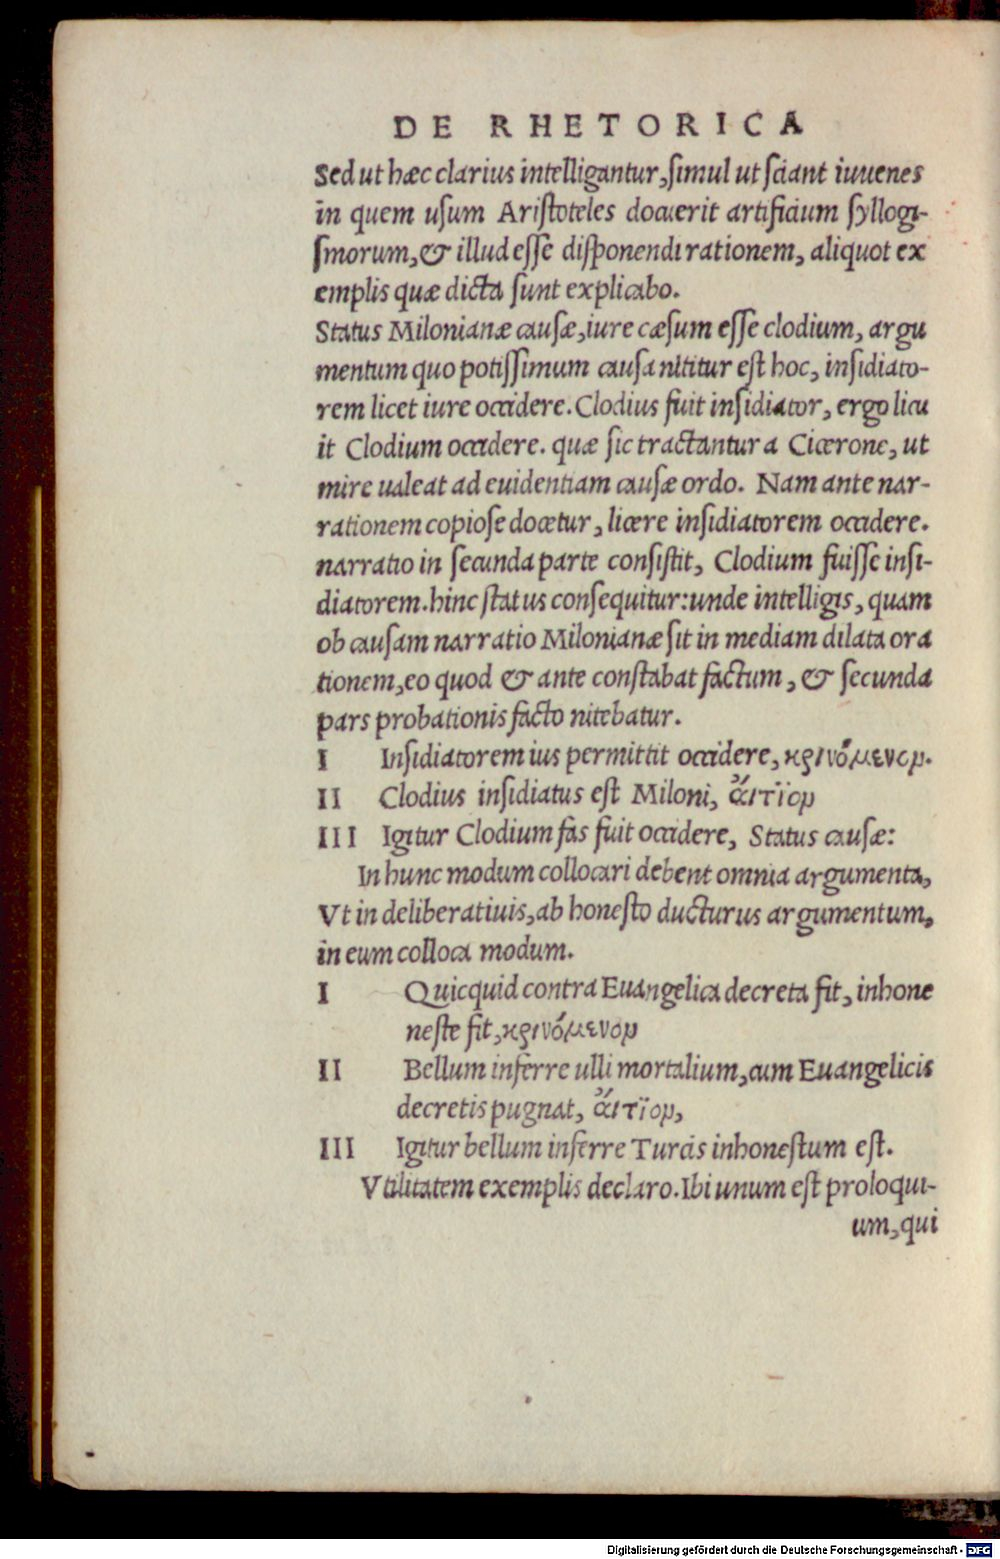 DE RHETORICA
Sed ut hæc clarius intelligantur, simul ut sciant iuuenes
in quem usum Aristoteles docuerit artificium syllogi-
smorum, & illud esse disponendi rationem, aliquot ex
emplis quæ dicta sunt explicabo.
Status Milonianæ causæ, iure cæsum esse clodium, argu
mentum quo potissimum causa nititur est hoc, insidiato-
rem licet iure occidere. Clodius fuit insidiator, ergo licu
it Clodium occidere. quæ sic tractantur a Cicerone, ut
mire ualeat ad euidentiam causæ ordo. Nam ante nar-
rationem copiose docetur, licere insidiatorem occidere.
narratio in secunda parte consistit, Clodium fuisse insi-
diatorem. hinc status consequitur: unde intelligis, quam
ob causam narratio Milonianæ sit in mediam dilata ora
tionem, eo quod & ante constabat factum, & secunda
pars probationis facto nitebatur.
I Insidiatorem ius permittit occidere, κρινόμενον.
II Clodius insidiatus est Miloni, ἄιτϊον
III Igitur Clodium fas fuit occidere, Status causæ:
In hunc modum collocari debent omnia argumenta,
Vt in deliberatiuis, ab honesto ducturus argumentum,
in eum colloca modum.
I Quicquid contra Euangelica decreta fit, inhone
neste fit, κρινόμενον
II Bellum inferre ulli mortalium, cum Euangelicis
decretis pugnat, ἄιτϊον,
III Igitur bellum inferre Turcis inhonestum est.
Vtilitatem exemplis declaro. Ibi unum est proloqui-
um, qui
Digitalisierung gefördert durch die Deutsche Forschungsgemeinschaft - DFG